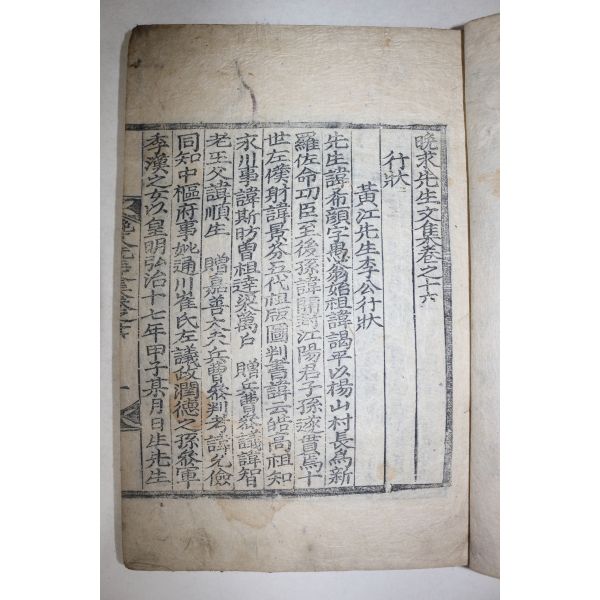 晩求先生文集卷之十六
行狀
黃江先生李公行狀
先生諱希顔字愚翁始祖諱謁平以楊山村長爲新
羅佐命功臣至後孫諱開封江陽君子孫遂貫焉十
世左僕射諱景芬五代祖版圖判書諱云皓高祖知
永川事諱斯昉曽祖達梁萬戶 贈兵曹叅議諱智
老王父諱順生 贈嘉善大夫兵曹叅判考諱允儉
同知中樞府事妣通川崔氏左議政潤德之孫叅軍
李漢之女以皇明弘治十七年甲子某月日生先生